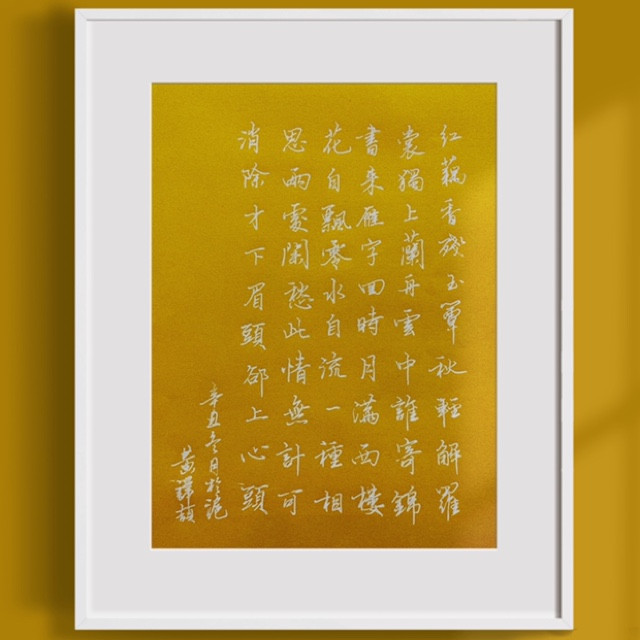 红藕香殘玉簟秋輕解羅
裳獨上蘭舟雲中誰寄錦
書来雁字回時月滿西樓
花自飄零水自流一種相
思兩處閑愁此情無計可
消除才下眉頭卻上心頭
辛丑冬月於滬
黄